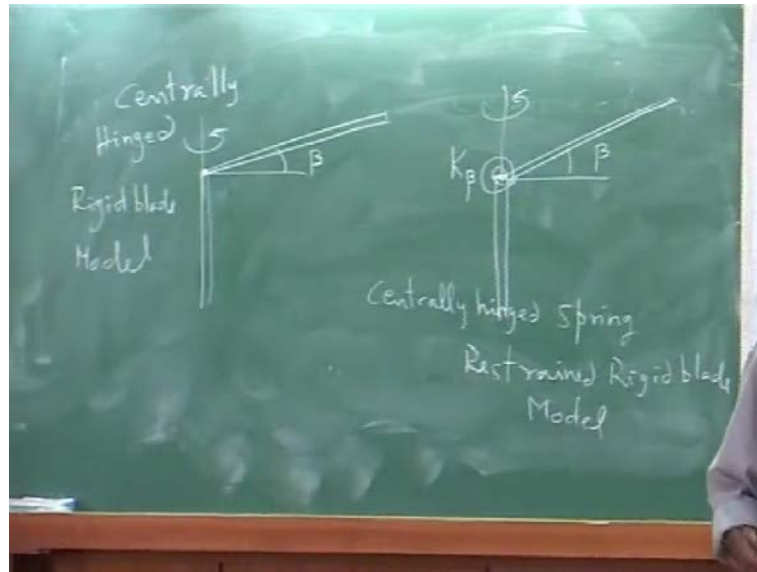 Centrally
Hinged
Rigid blade
Model
β
Kβ
β
Centrally hinged Spring
Restrained Rigid blade
Model